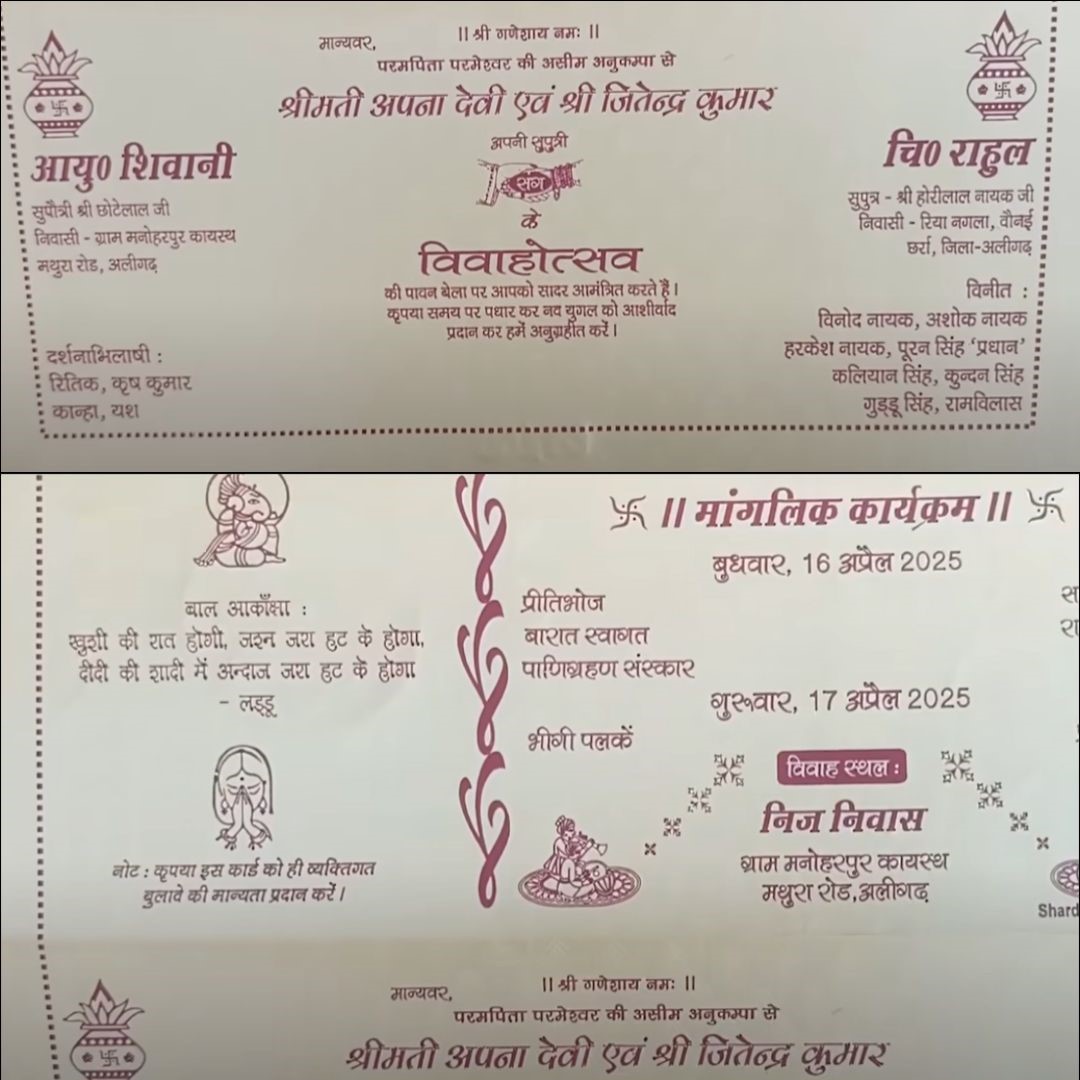 || श्री गणेशाय नमः ||
मान्यवर,
परमपिता परमेश्वर की असीम अनुकम्पा से
श्रीमती अपना देवी एवं श्री जितेन्द्र कुमार
अपनी सुपुत्री
आयु0 शिवानी
सुपौत्री श्री छोटेलाल जी
निवासी - ग्राम मनोहरपुर कायस्थ
मथुरा रोड, अलीगढ़
संग
चि0 राहुल
सुपुत्र - श्री होरीलाल नायक जी
निवासी - रिया नगला, वौनई
छर्रा, जिला-अलीगढ़
के
विवाहोत्सव
की पावन बेला पर आपको सादर आमंत्रित करते हैं।
कृपया समय पर पधार कर नव युगल को आशीर्वाद
प्रदान कर हमें अनुग्रहीत करें।
दर्शनाभिलाषी :
रितिक, कृष कुमार
कान्हा, यश
विनीत :
विनोद नायक, अशोक नायक
हरकेश नायक, पूरन सिंह ‘प्रधान’
कलियान सिंह, कुन्दन सिंह
गुड्डू सिंह, रामविलास
बाल आकाँक्षा :
खुशी की रात होगी, जश्न जरा हट के होगा,
दीदी की शादी में अन्दाज जरा हट के होगा
- लड्डू
नोट : कृपया इस कार्ड को ही व्यक्तिगत
बुलावे की मान्यता प्रदान करें।
|| मांगलिक कार्यक्रम ||
बुधवार, 16 अप्रैल 2025
प्रीतिभोज
बारात स्वागत
पाणिग्रहण संस्कार
गुरूवार, 17 अप्रैल 2025
भीगी पलकें
विवाह स्थल :
निज निवास
ग्राम मनोहरपुर कायस्थ
मथुरा रोड,अलीगढ़
|| श्री गणेशाय नमः ||
मान्यवर,
परमपिता परमेश्वर की असीम अनुकम्पा से
श्रीमती अपना देवी एवं श्री जितेन्द्र कुमार